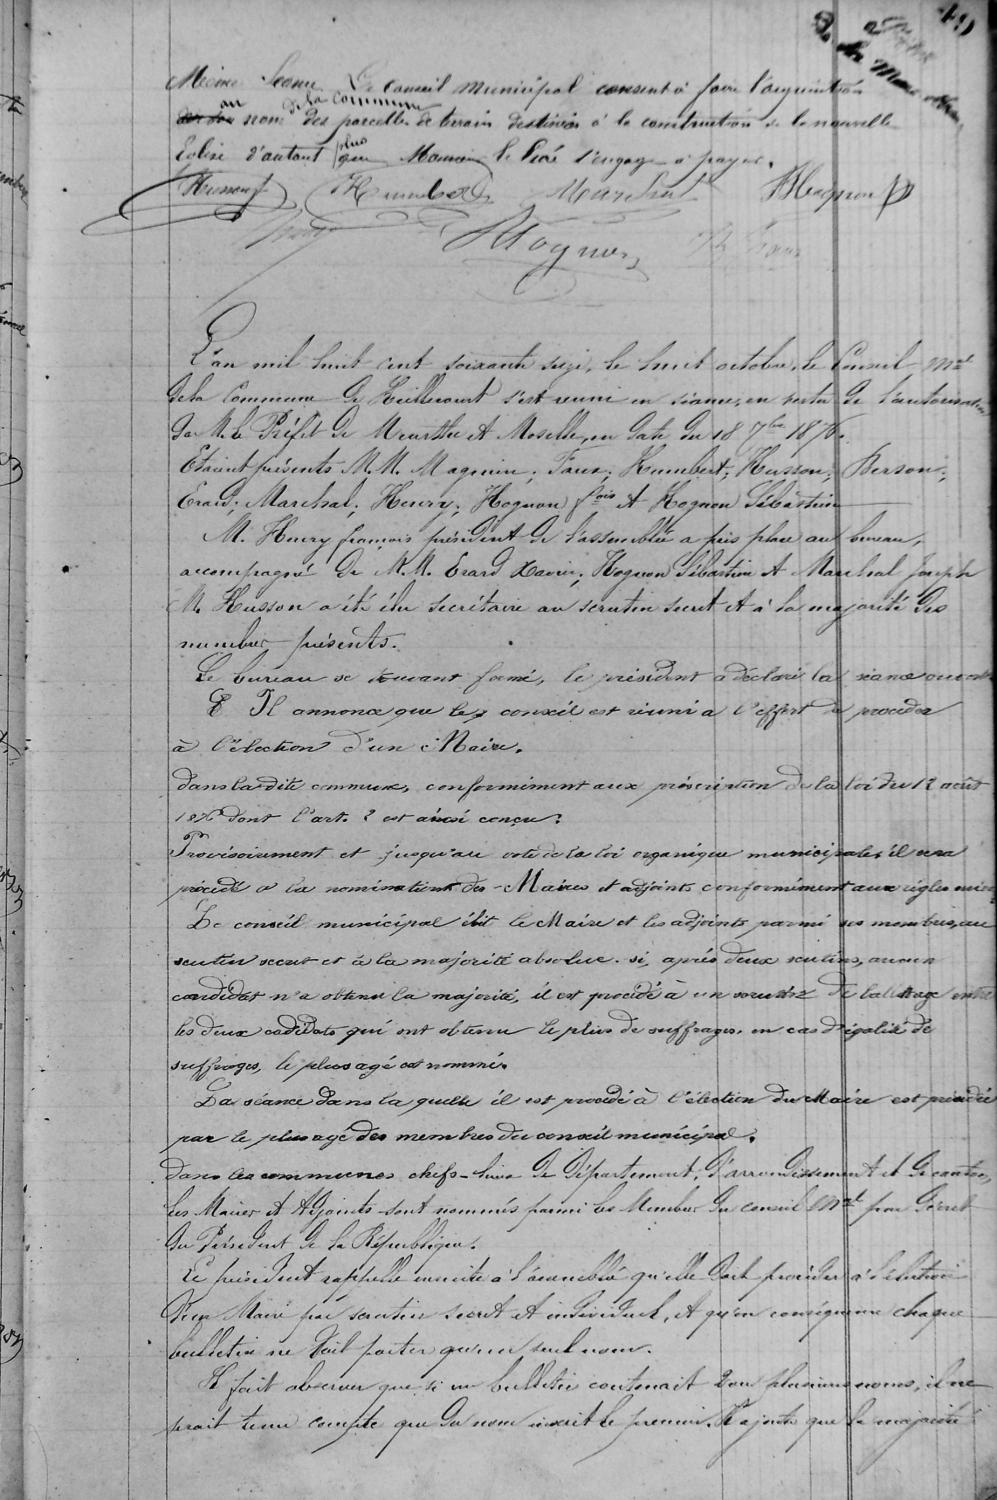 Même Séance Le Conseil Municipal consent à faire l'acquisition
au nom de la commune des parcelles de terrain destinées à la construction de la nouvelle
Eglise d'autant plus que Monsieur le Curé s'engage à payer.
Humbert Marchal Hognon
Hognon
L'an mil huit cent soixante seize, le huit octobre, le Conseil Mal
de la Commune de Heillecourt s'est réuni en séance, en vertu de l'autorisation
de M. le Préfet de Meurthe et Moselle, en date du 18 7bre 1876.
Etaient présents M.M. Magnin; Faux; Humbert; Husson; Berson;
Erard; Marchal; Henry; Hognon fois et Hognon Sébastien
M. Henry françois président de l'assemblée a pris place au bureau,
accompagné de M.M. Erard Xavier; Hognon Sébastien et Marchal Joseph
M. Husson a été élu secrétaire au scrutin secret et à la majorité des
membres présents.
Le bureau se trouvant formé, le président a déclaré la séance ouverte
Il annonce que le conseil est réuni a l'effet de procéder
à l'élection d'un Maire.
dans la dite commune, conformément aux préscription de la loi du 12 août
1876 dont l'art. 2 est ainsi conçu:
Provisoirement et jusqu'au vote de la loi organique municipale, il sera
procédé a la nomination des Maires et adjoints conformément aux règles
Le conseil municipal élit le Maire et les adjoints parmi ses membres, au
scutin secret et à la majorité absolue. si, après deux scutins, aucun
candidat n'a obtenu la majorité, il est procédé à un scrutin de ballotage entre
les deux cadidats qui ont obtenu le plus de suffrages. en cas d'égalité de
suffrages, le plus agé est nommé.
La séance dans la quelle il est procédé à l'élection du Maire est présidée
par le plus agé des membres du conseil municipal.
dans les communes chefs-lieux de département, d'arrondissement et de canton,
les Maires et Adjoints sont nommés parmi les Membres du conseil Mal par décret
du Président de la République.
Le président rappelle ensuite à l'assemblée qu'elle doit procéder à l'élection
d'un Maire par scrutin secret et individuel, et qu'en conséquence chaque
bulletin ne doit porter qu'un seul nom.
Il fait observer que si un bulletin contenait 2 ou plusieurs noms, il ne
serait tenu compte que du nom inscrit le premier. Il ajoute que la majorité